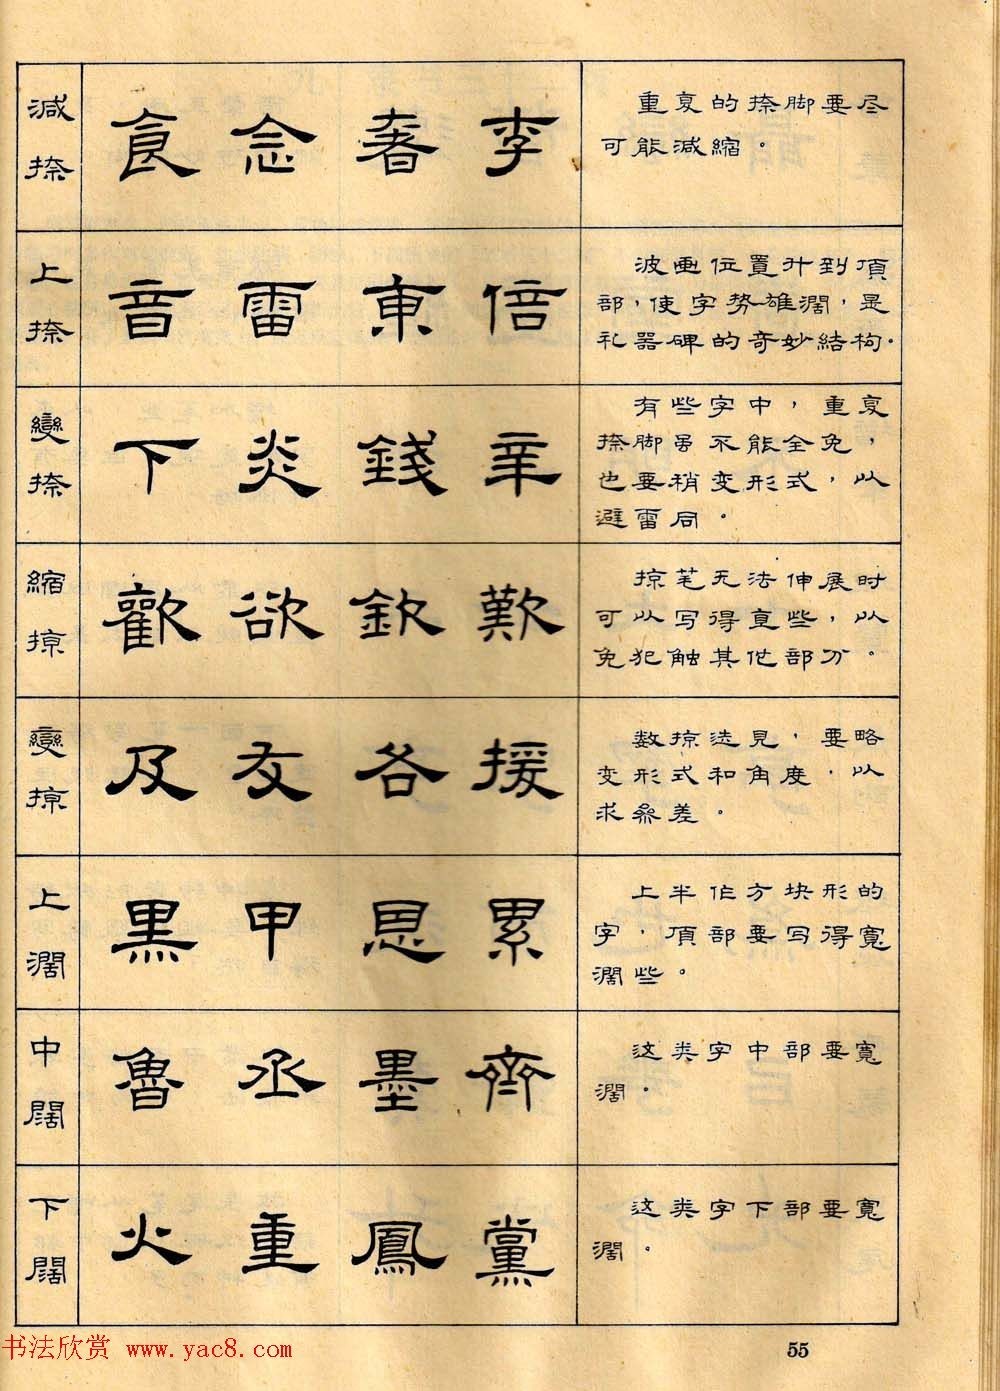 減捺
食 念 耆 李
重复的捺脚要尽
可能減縮。
上捺
音 雷 東 倍
波画位置升到頂
部，使字势雄濶，是
礼器碑的奇妙結构。
變捺
下 炎 錢 辛
有些字中，重复
捺脚虽不能全免，
也要稍变形式，以
避雷同。
縮掠
歡 欲 欽 歎
掠笔无法伸展时
可以写得直些，以
免犯触其他部分。
變掠
及 友 各 援
数掠迭見，要略
变形式和角度，以
求参差。
上濶
黑 甲 恩 累
上半作方块形的
字，頂部要写得寬
濶些。
中闊
魯 丞 墨 齊
这类字中部要寬
濶。
下闊
火 重 鳳 黨
这类字下部要寬
濶。
书法欣赏 www.yac8.com
55